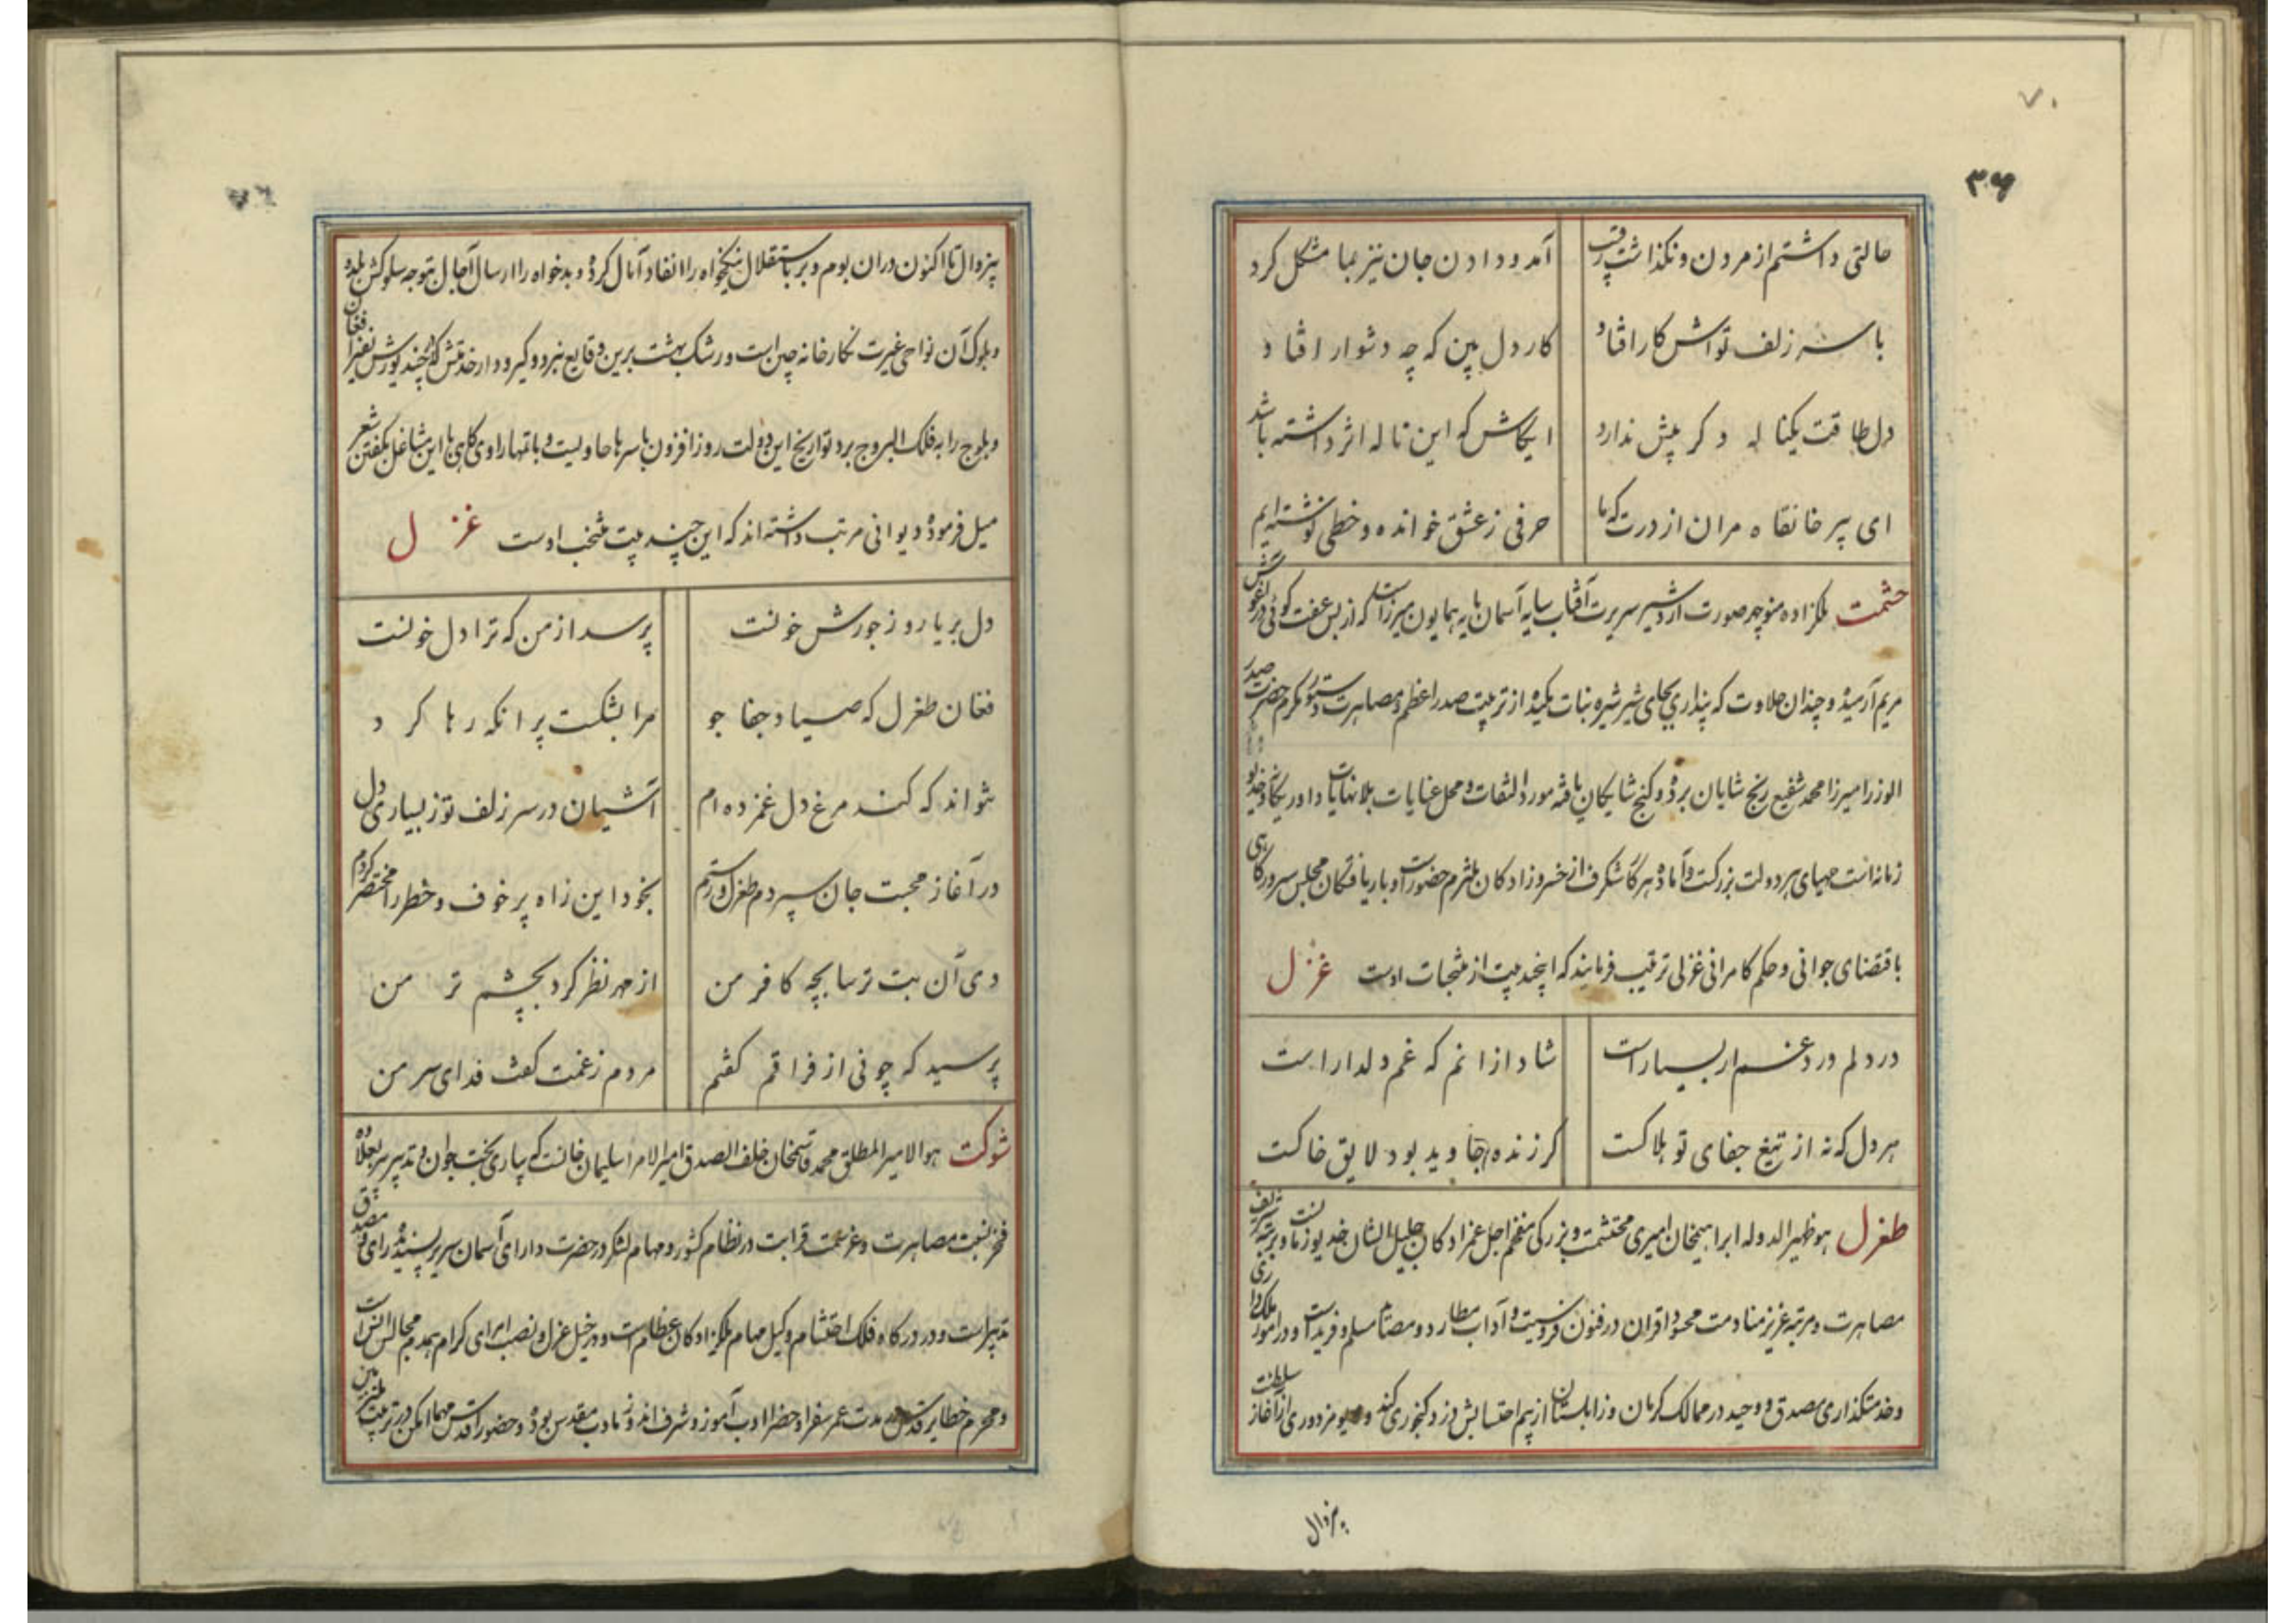 ۷۰
۳۶
حالتی داشتم از مردن و نگذاشت رقیب آمد و دادن جان نیز بما مشکل کرد
با سر زلف تواش کار افتاد کار دل بین که چه دشوار افتاد
دل طاقت یکناله دگر بیش ندارد ایکاش که این ناله اثر داشته باشد
ای پیر خانقاه مران از درت که ما حرفی ز عشق خوانده و خطی نوشته‌ایم
حشمت ملکزاده منوچهر صورت اردشیر سیرت آفتاب سایه آسمان پایه همایون میرزاست که از بس عفت گوئی در
مریم آرمیده و چندان حلاوت که پنداری بجای شیر شیره نبات مکیده از تربیت صدر اعظم و مصاهرت دستور مکرم حضرت صدر
الوزرا میرزا محمد شفیع رنج شایان برده و گنج شایگان یافته مورد التفات و محل عنایات بلانهایات داور یگانه خدیو
زمانه است مهیای هر دولت بزرگست و آماده هر کار شگرف از خسروزادگان ملتزم حضورست و بار یافتگان مجلس سرور گاهی
باقتضای جوانی و حکم کامرانی غزلی ترتیب فرمایند که اینچند بیت از منتخبات اوست غزل
در دلم درد غم ار بسیار است شاد ازانم که غم دلدار است
هر دل که نه از تیغ جفای تو هلاکست گر زنده جاوید بود لایق خاکست
طغرل هو ظهیر الدوله ابراهیمخان امیری محتشمست و بزرگی مفخم اجل عمزادگان جلیل الشان خدیو زمانست و برتبه شریف
مصاهرت و مرتبه عزیز منادمت محسود اقران در فنون فروسیت و آداب مطارد و مصاف مسلم و فرید است و در امور ملکداری
و خدمتگذاری مصدق و وحید در ممالک کرمان و زابلستان از بیم احتسابش دزد گنجوری کند و دیو مزدوری از آغاز سلطنت
بیزوال
بیزوال تا اکنون دران بوم و بر باستقلال نیکخواه را انفاد آمال کرده و بدخواه را ارسال آجال بتوجه سلوکش بلده
و بلوک آن نواحی غیرت نگارخانه چین است و رشک بهشت برین وقایع نبرد و گیرودار خدمتش که چند یورش نفیر افغان
و بلوج را به فلک البروج برد تواریخ این دولت روز افزون باسرها حاویست و بانتهار اوی گاهی با این مشاغل بگفتن شعر
میل فرموده دیوانی مرتب داشته‌اند که این چند بیت منتخب اوست غزل
دل بر یار و ز جورش خونست پرسد از من که ترا دل خونست
فغان طغرل که صیاد جفا جو مرا بشکست پر انکه رها کرد
نتواند که کند مرغ دل غمزده‌ام آشیان در سر زلف تو ز بسیاری دل
در آغاز محبت جان سپردم طغرل و رستم بخود این راه پر خوف و خطر را مختصر کردم
دی آن بت ترسا بچه کافر من از مهر نظر کرد بچشم تر من
پرسید که چونی از فراقم گفتم مردم ز غمت گفت فدای سر من
شوکت هو الامیر المطلق محمد قاسمخان خلف الصدق امیر الامرا سلیمان خانست که بیاری بخت جوان و تدبیر پیر بعلاوه
فخر نسبت مصاهرت و عز سمت قرابت در نظام کشور و مهام لشکر در حضرت دارای آسمان سریر پسندیده رای و مصدق
تدبیر است و در درگاه فلک احتشام وکیل مهام ملکزادگان عظام است و در خیل عزل و نصب امرای کرام همدم مجالس انس است
و محرم خطایر قدس مدت عمر سفرا و حضرا ادب آموز و شرف اندوز مادب مقدس بوده و حضور اقدس مهما امکن در تربیت